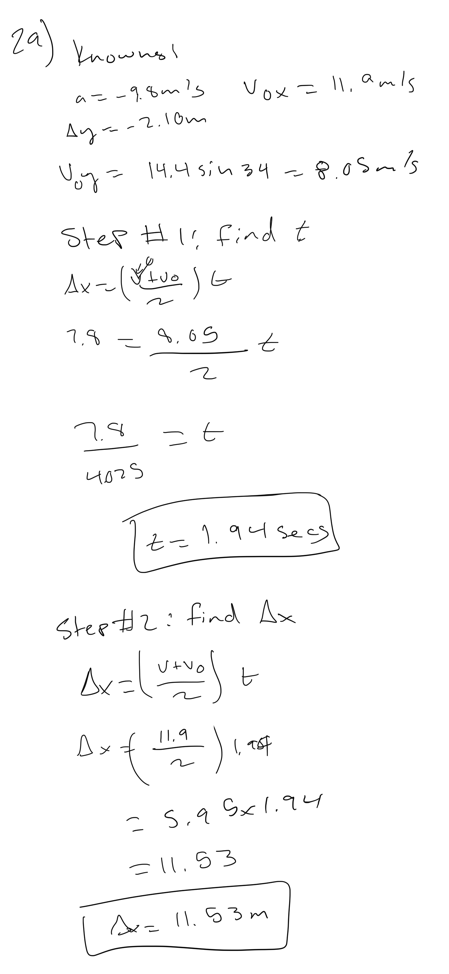 2a) Knowns!
a = -9.8m/s   Vox = 11.9m/s
Δy = -2.10m
Voy = 14.4 sin 34 = 8.05m/s
Step #1: find t
Δx = (v+vo / 2) t
7.8 = 8.05 / 2 t
7.8 / 4025 = t
t = 1.94 secs
Step #2: find Δx
Δx = (v+vo / 2) t
Δx = (11.9 / 2) 1.94
= 5.95 x 1.94
= 11.53
Δx = 11.53m